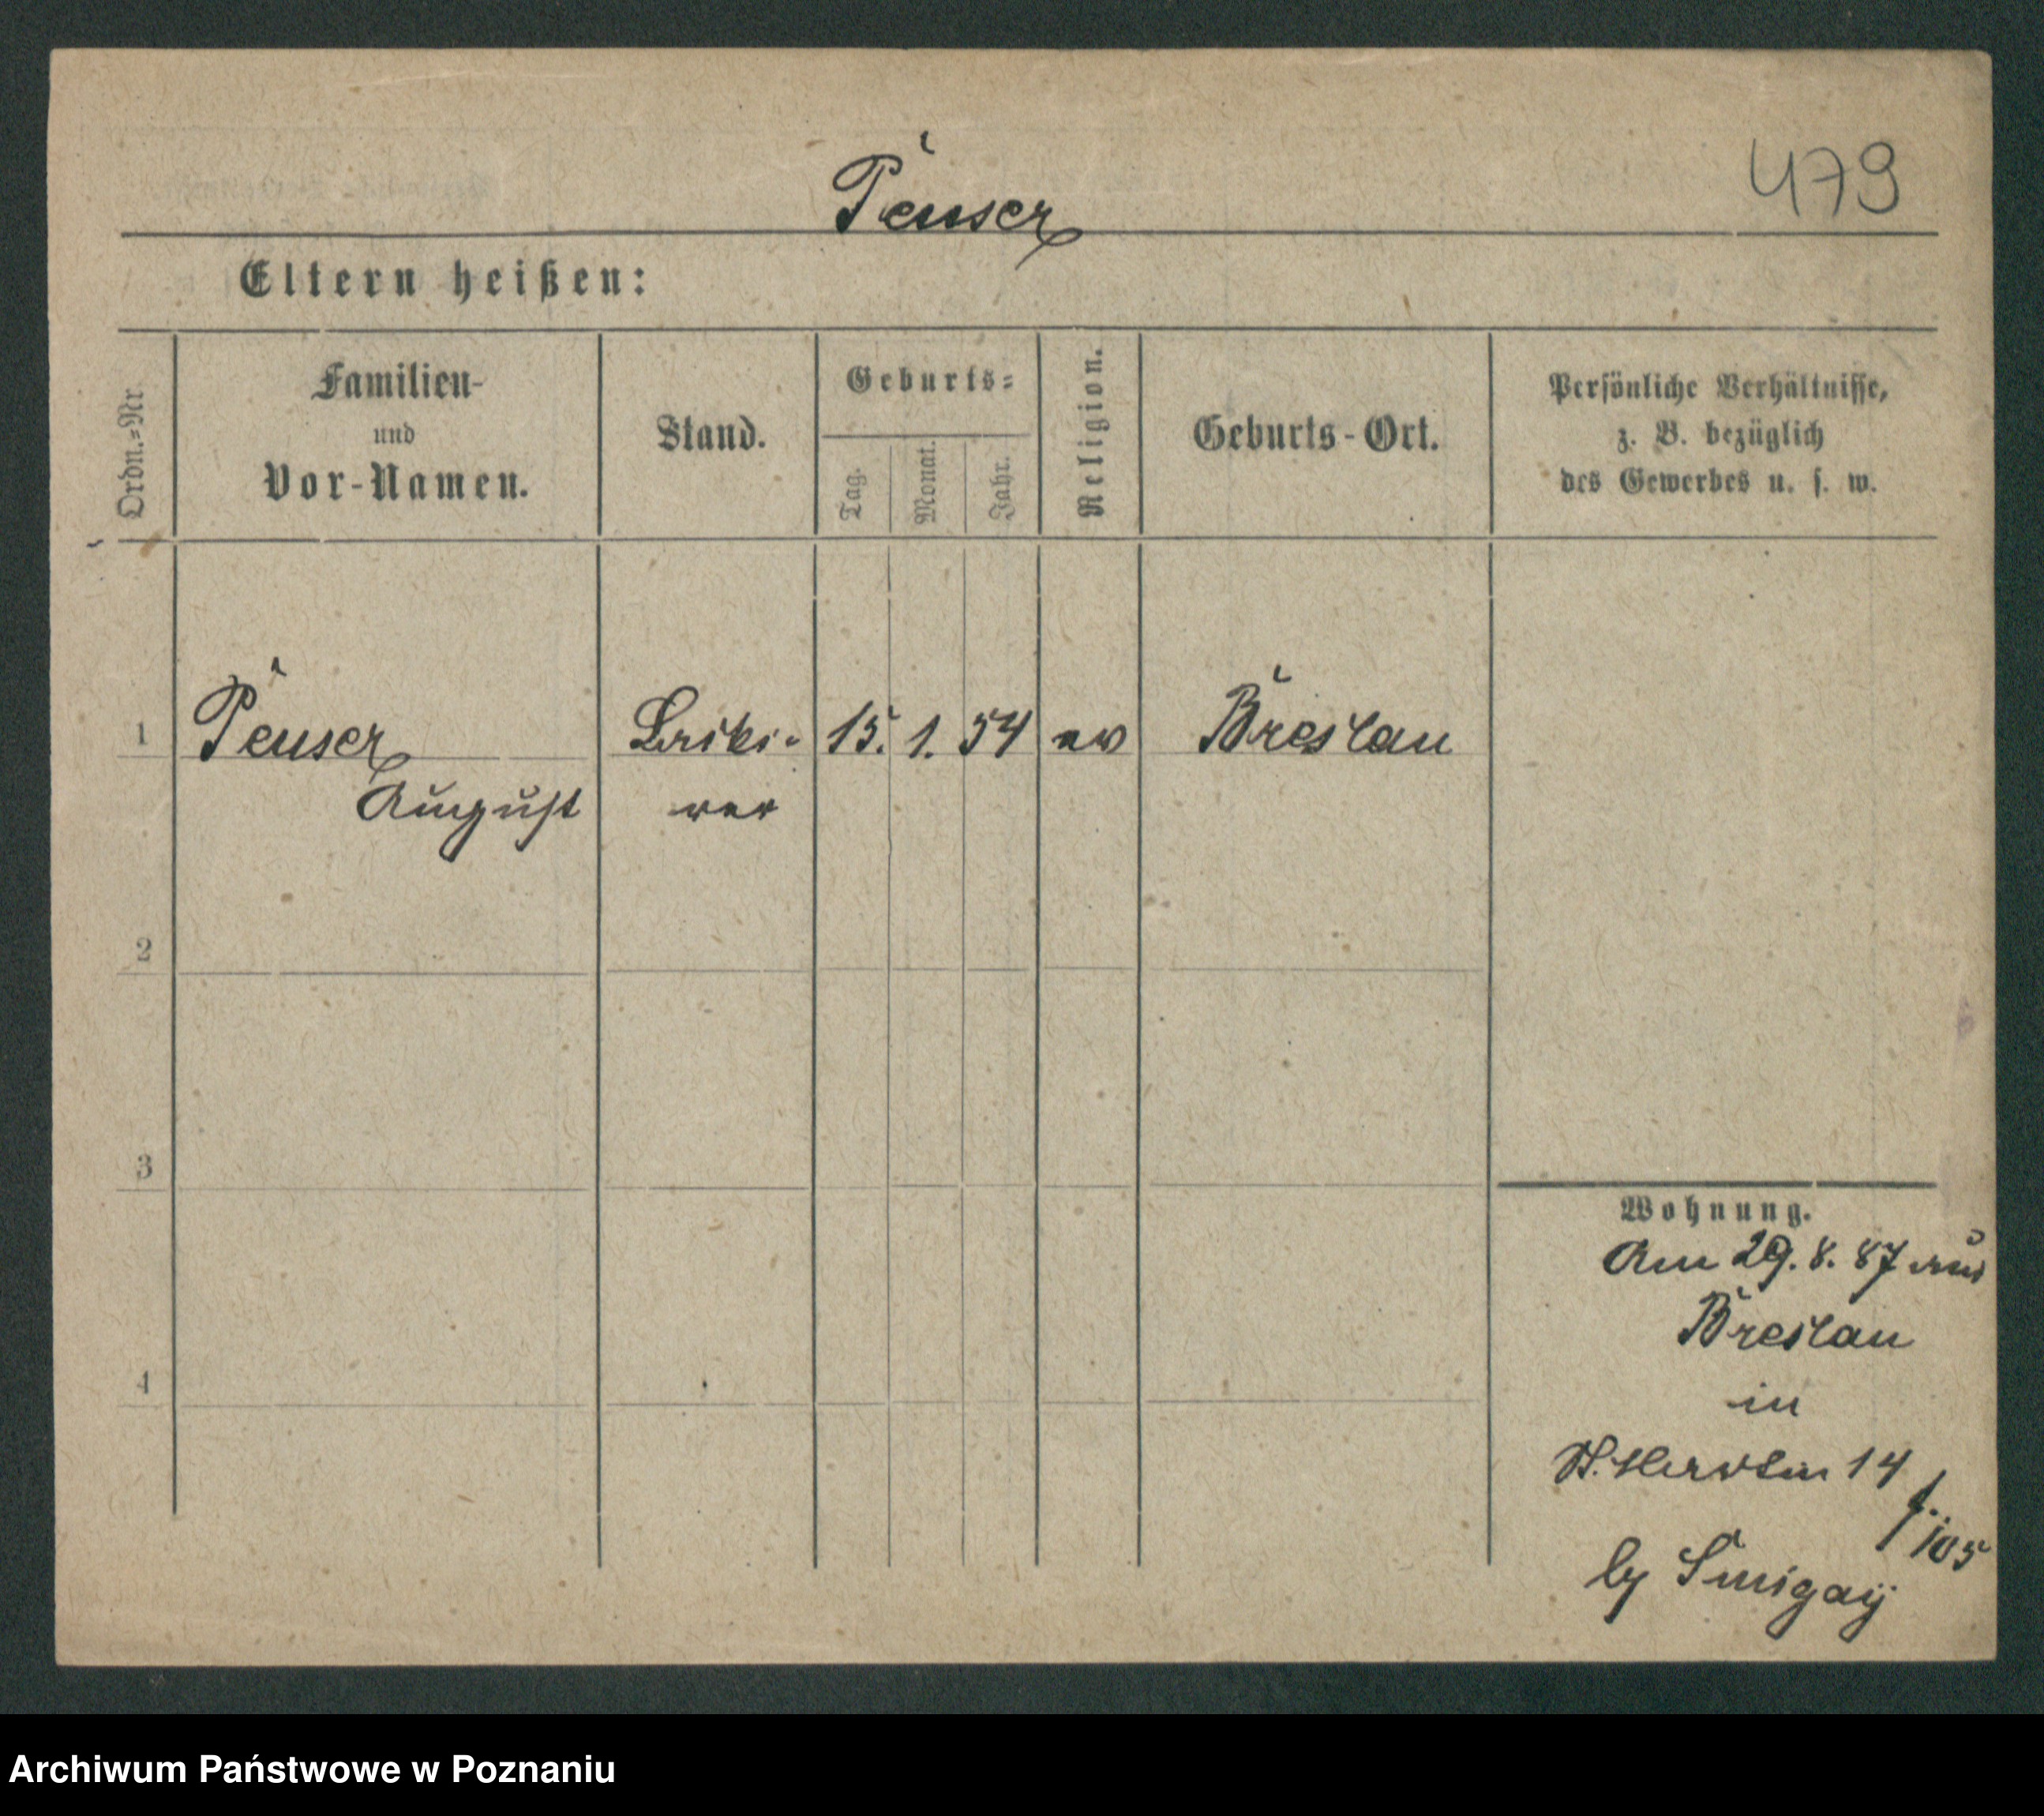 Peuser
479
Eltern heißen:
Ordn.=Nr
Familien-
und
Vor-Namen.
Stand.
Geburts=
Tag.
Monat.
Jahr.
Religion.
Geburts-Ort.
Persönliche Verhältnisse,
z. B. bezüglich
des Gewerbes u. s. w.
1
Peuser
August
15. 1. 54
ev
Breslau
2
3
4
Wohnung.
Am 29. 8. 87 aus
Breslau
in
14
f. 105
by Smigay
Archiwum Państwowe w Poznaniu